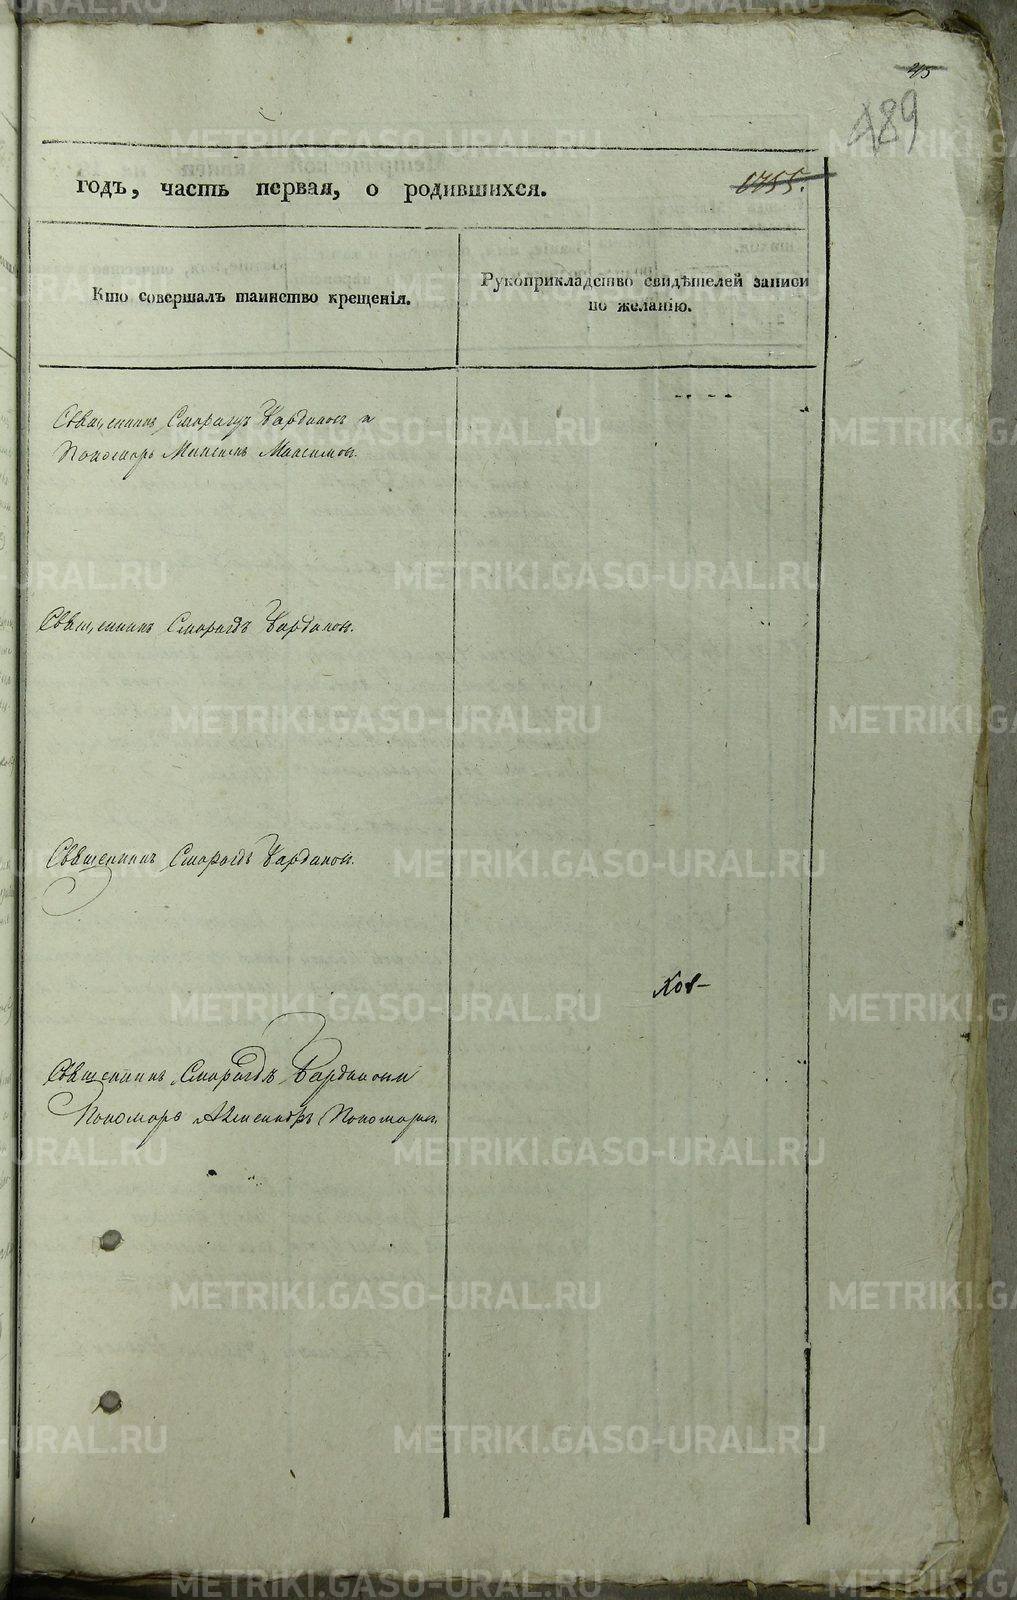 489
годъ, часть первая, о родившихся.
1755.
Кто совершалъ таинство крещенія.
Рукоприкладство свидѣтелей записи
по желанію.
Священникъ Смарагдъ Вардановъ и
Пономарь Максимовъ.
Священникъ Смарагдъ Вардановъ.
Священникъ Смарагдъ Вардановъ.
Священникъ Смарагдъ
Пономарь Александръ Пономаревъ
METRIKI.GASO-URAL.RU